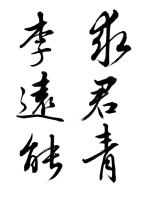 求君青
李遠能